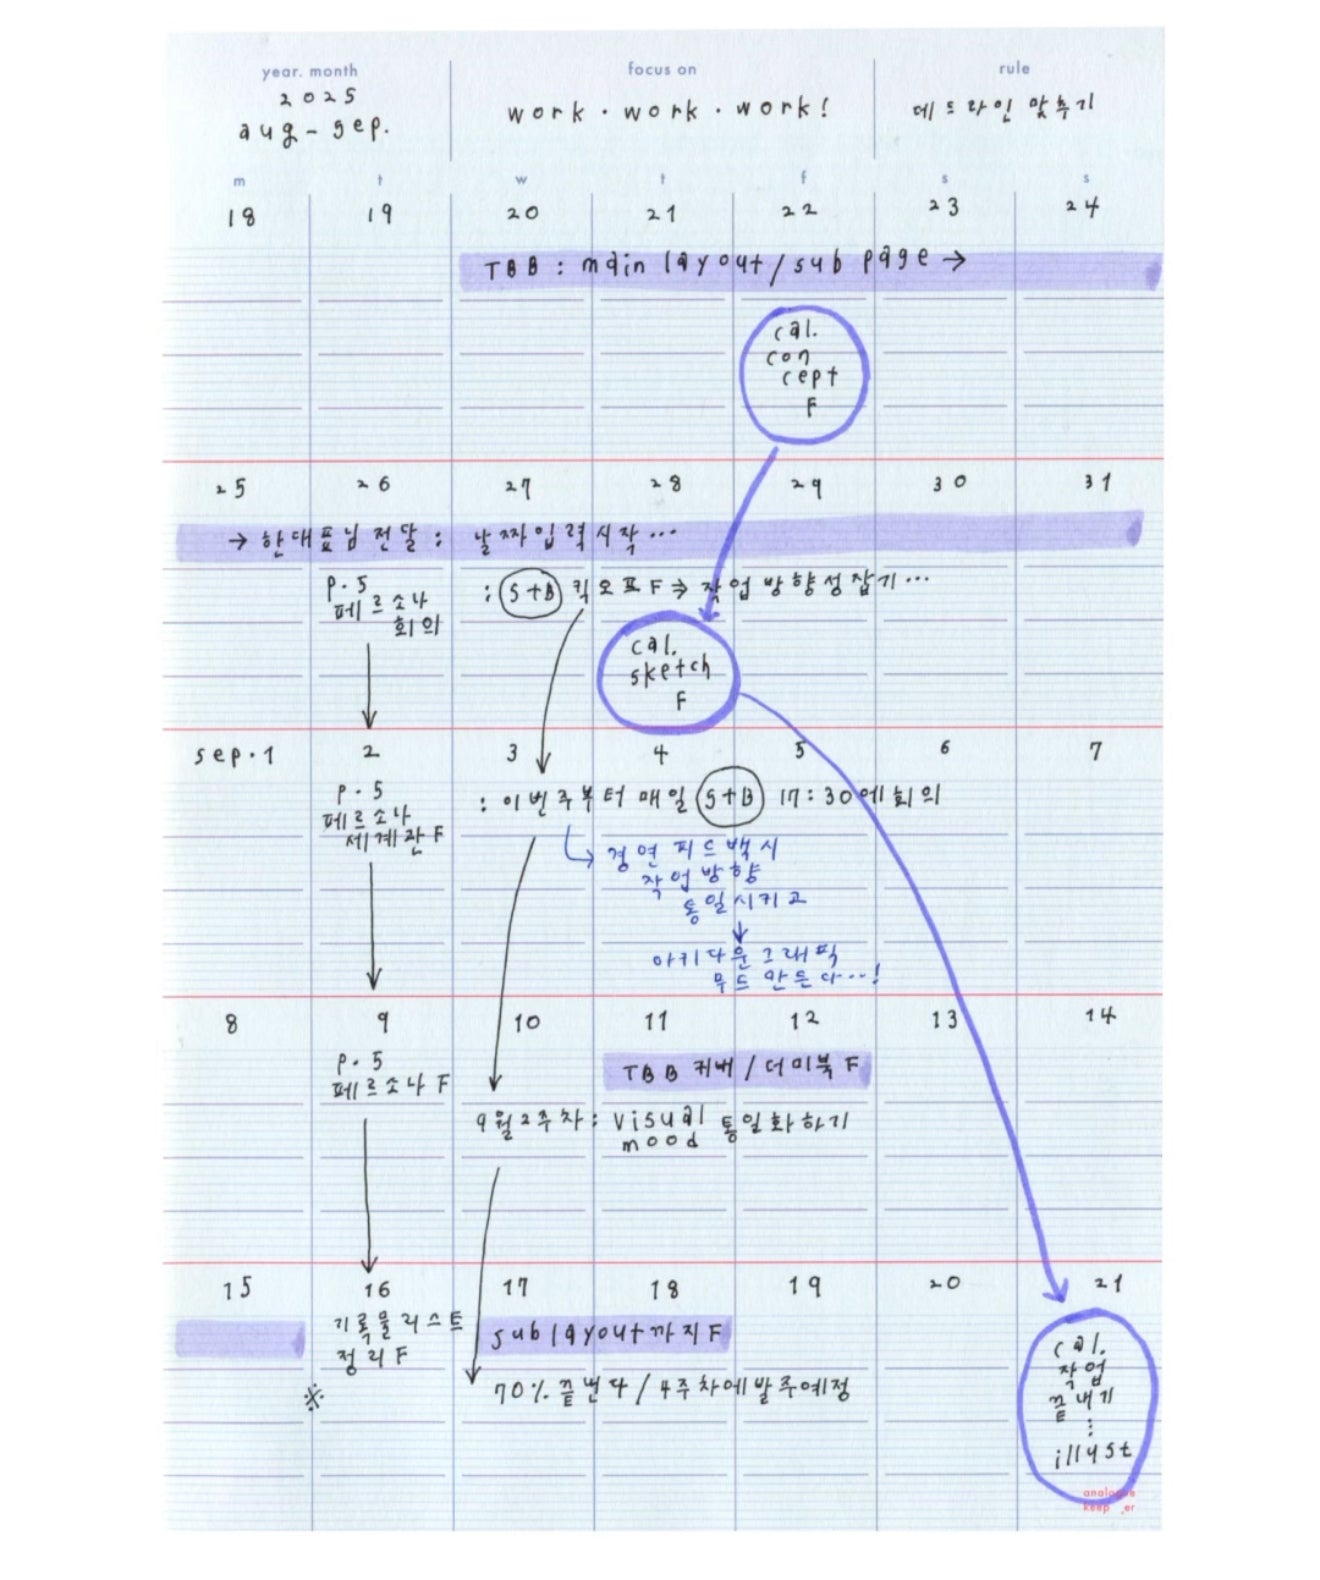 year. month
focus on
rule
2025
aug - sep.
work · work · work!
데드라인 맞추기
m t w t f s s
18 19 20 21 22 23 24
TBB : main layout / sub page →
cal.
con
cept
F
25 26 27 28 29 30 31
→ 한대표님 전달 : 날짜입력시작...
p. 5
페르소나
회의
: S+B 킥오프 F → 작업 방향성잡기...
cal.
sketch
F
sep. 1 2 3 4 5 6 7
p. 5
페르소나
세계관 F
: 이번주부터 매일 S+B 17:30에 회의
경연 피드백시
작업방향
통일시키고
↓
아키다운 그래픽
무드 만든다...!
8 9 10 11 12 13 14
p. 5
페르소나 F
TBB 커버 / 더미북 F
9월 2주차 : visual mood 통일화하기
15 16 17 18 19 20 21
기록물리스트
정리 F
※
sub layout까지 F
70% 끝낸다 / 4주차에발주예정
cal.
작업
끝내기
⋮
illust
analogue
keeper